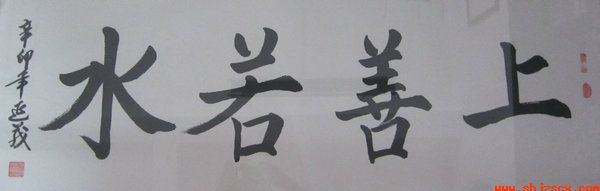 上善若水
辛卯年延義
www.shjzscx.com